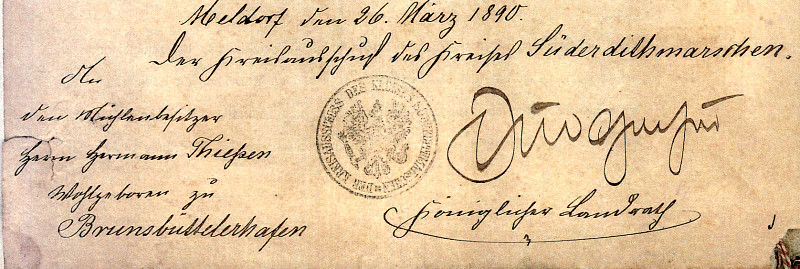 Meldorf den 26. März 1890.
Der Kreisausschuß des Kreises Süderdithmarschen.
An
den Mühlenbesitzer
Herrn Hermann Thießen
Wohlgeboren zu
Brunsbüttelerhafen
DER KREISAUSSCHUSS DES KREISES SÜDERDITHMARSCHEN
Königlicher Landrath